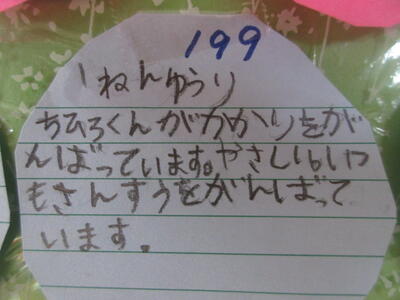 199
1ねんゆうり
ちひろくんがかかりをが
んばっています。やさしい。いつ
もさんすうをがんばって
います。